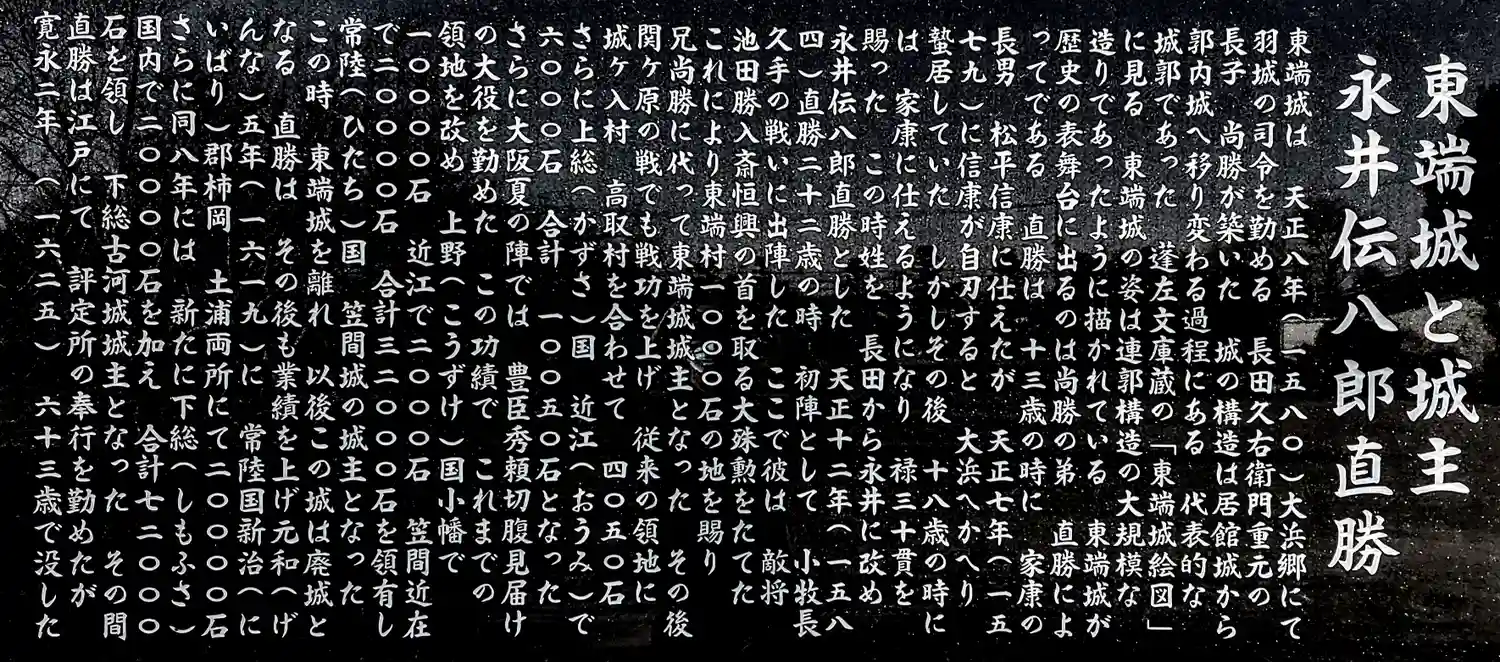 東端城と城主
永井伝八郎直勝
東端城は　天正八年(一五八〇)大浜郷にて
羽城の司令を勤める　長田久右衛門重元の
長子　尚勝が築いた　城の構造は居館城から
郭内城へ移り変わる過程にある　代表的な
城郭であった　蓬左文庫蔵の「東端城絵図」
に見る　東端城の姿は連郭構造の大規模な
造りであったように描かれている　東端城が
歴史の表舞台に出るのは尚勝の弟　直勝によ
ってである　直勝は　十三歳の時に　家康の
長男　松平信康に仕えたが　天正七年(一五
七九)に信康が自刃すると　大浜へかへり
蟄居していた　しかしその後　十八歳の時に
は　家康に仕えるようになり　禄三十貫を
賜った　この時姓を　長田から永井に改め
永井伝八郎直勝とした　天正十二年(一五八
四)直勝二十二歳の時　初陣として　小牧長
久手の戦いに出陣した　ここで彼は　敵将
池田勝入斎恒興の首を取る大殊勲をたてた
これにより東端村一〇〇〇石の地を賜り
兄尚勝に代って東端城城主となった　その後
関ヶ原の戦でも戦功を上げ　従来の領地に
城ケ入村　高取村を合わせて　四〇五〇石
さらに上総(かずさ)国　近江(おうみ)で
六〇〇〇石　合計　一〇〇五〇石となった
さらに大阪夏の陣では　豊臣秀頼切腹見届け
の大役を勤めた　この功績で　これまでの
領地を改め　上野(こうずけ)国小幡で
一〇〇〇〇石　近江で二〇〇〇石　笠間近在
で二〇〇〇〇石　合計三二〇〇〇石を領有し
常陸(ひたち)国　笠間城の城主となった
この時　東端城を離れ　以後この城は廃城と
なる　直勝は　その後も業績を上げ元和(げ
んな)五年(一六一九)に　常陸国新治(に
いばり)郡柿岡　土浦両所にて二〇〇〇〇石
さらに同八年には　新たに下総(しもふさ)
国内で二〇〇〇〇石を加え　合計七二〇〇〇
石を領し　下総古河城城主となった　その間
直勝は江戸にて　評定所の奉行を勤めたが
寛永二年(一六二五)　六十三歳で没した